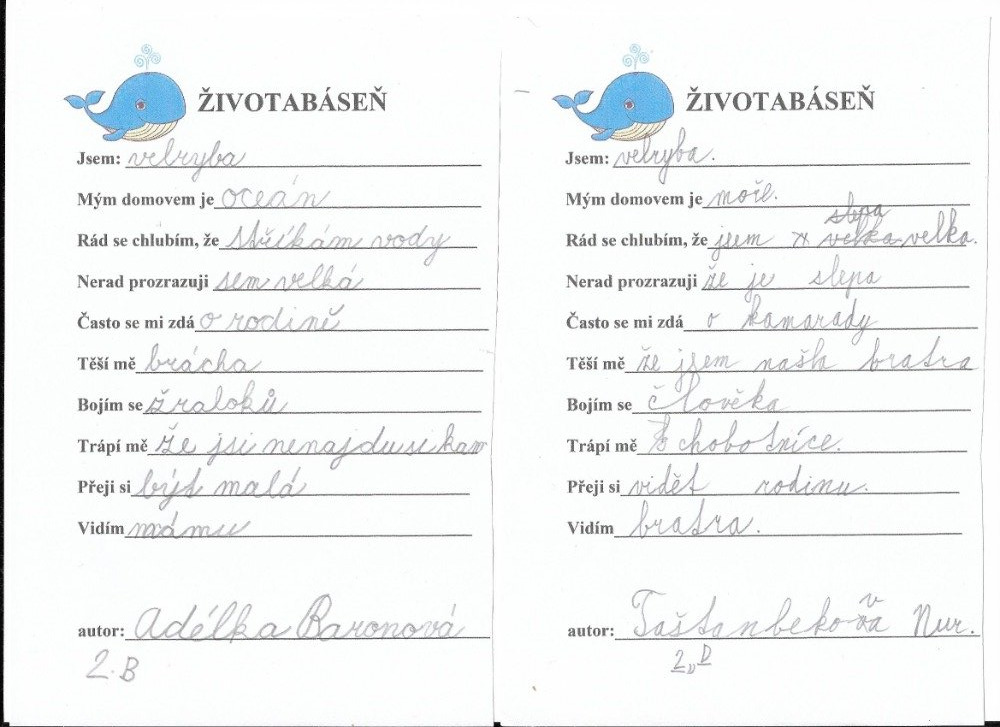 ŽIVOTABÁSEŇ
Jsem: velryba
Mým domovem je oceán
Rád se chlubím, že stříkám vody
Nerad prozrazuji sem velká
Často se mi zdá o rodině
Těší mě brácha
Bojím se žraloků
Trápí mě že jsi nenajdu si kam
Přeji si být malá
Vidím mámu
autor: Adélka Baronová
2.B
ŽIVOTABÁSEŇ
Jsem: velryba.
Mým domovem je moře.
slepa
Rád se chlubím, že jsem velka velka.
Nerad prozrazuji že je slepa
Často se mi zdá o kamarady
Těší mě že jsem našla bratra
Bojím se člověka
Trápí mě chobotnice.
Přeji si vidět rodinu.
Vidím bratra.
autor: Taštanbekova Nur.
2„D